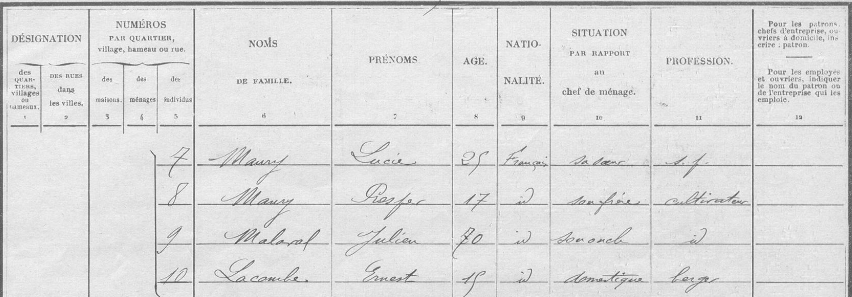 DÉSIGNATION
des QUAR- TIERS, villages ou hameaux.
DES RUES dans les villes.
NUMÉROS
PAR QUARTIER,
village, hameau ou rue.
des maisons.
des ménages
des individus
NOMS
DE FAMILLE.
PRÉNOMS
AGE.
NATIO-
NALITÉ.
SITUATION
PAR RAPPORT
au
chef de ménage.
PROFESSION.
Pour les patrons,
chefs d'entreprise, ou-
vriers à domicile, ins-
crire : patron.
Pour les employés
et ouvriers, indiquer
le nom du patron ou
de l'entreprise qui les
emploie.
1 2 3 4 5 6 7 8 9 10 11 12
7 Maury Lucie 25 Français sa sœur s. p.
8 Maury Prosper 17 id son frère cultivateur
9 Malaval Julien 70 id son oncle id
10 Lacombe Ernest 15 id domestique berger